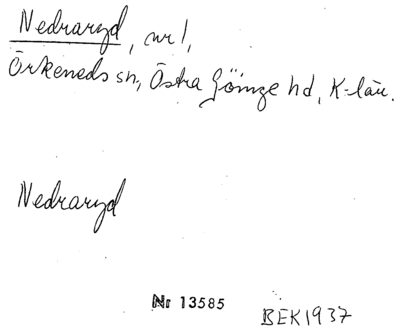 Nedraryd, nr 1,
Örkeneds sn, Östra Göinge hd, K-län.
Nedraryd
Nr 13585
BEK1937